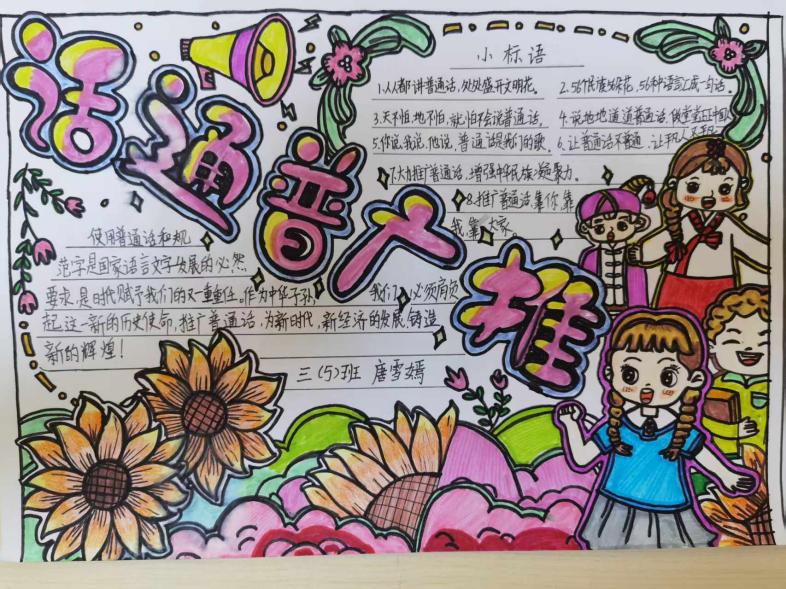 话通普广推
小标语
1.人人都讲普通话,处处盛开文明花。
2.56个民族56朵花,56种语言汇成一句话。
3.天不怕,地不怕,就怕不会说普通话。
4.说地地道道普通话,做堂堂正正中国人
5.你说,我说,他说,普通话是我们的歌。
6.让普通话不普通,让
7.大力推广普通话,增强中华民族凝聚力。
8.推广普通话,靠你,靠
我,靠大家。
使用普通话和规
范字是国家语言文字发展的必然
要求,是时代赋予我们的又一重任。作为中华子孙,我们必须肩负
起这一新的历史使命,推广普通话,为新时代,新经济的发展,铸造
新的辉煌!
三(5)班 唐雪嫣